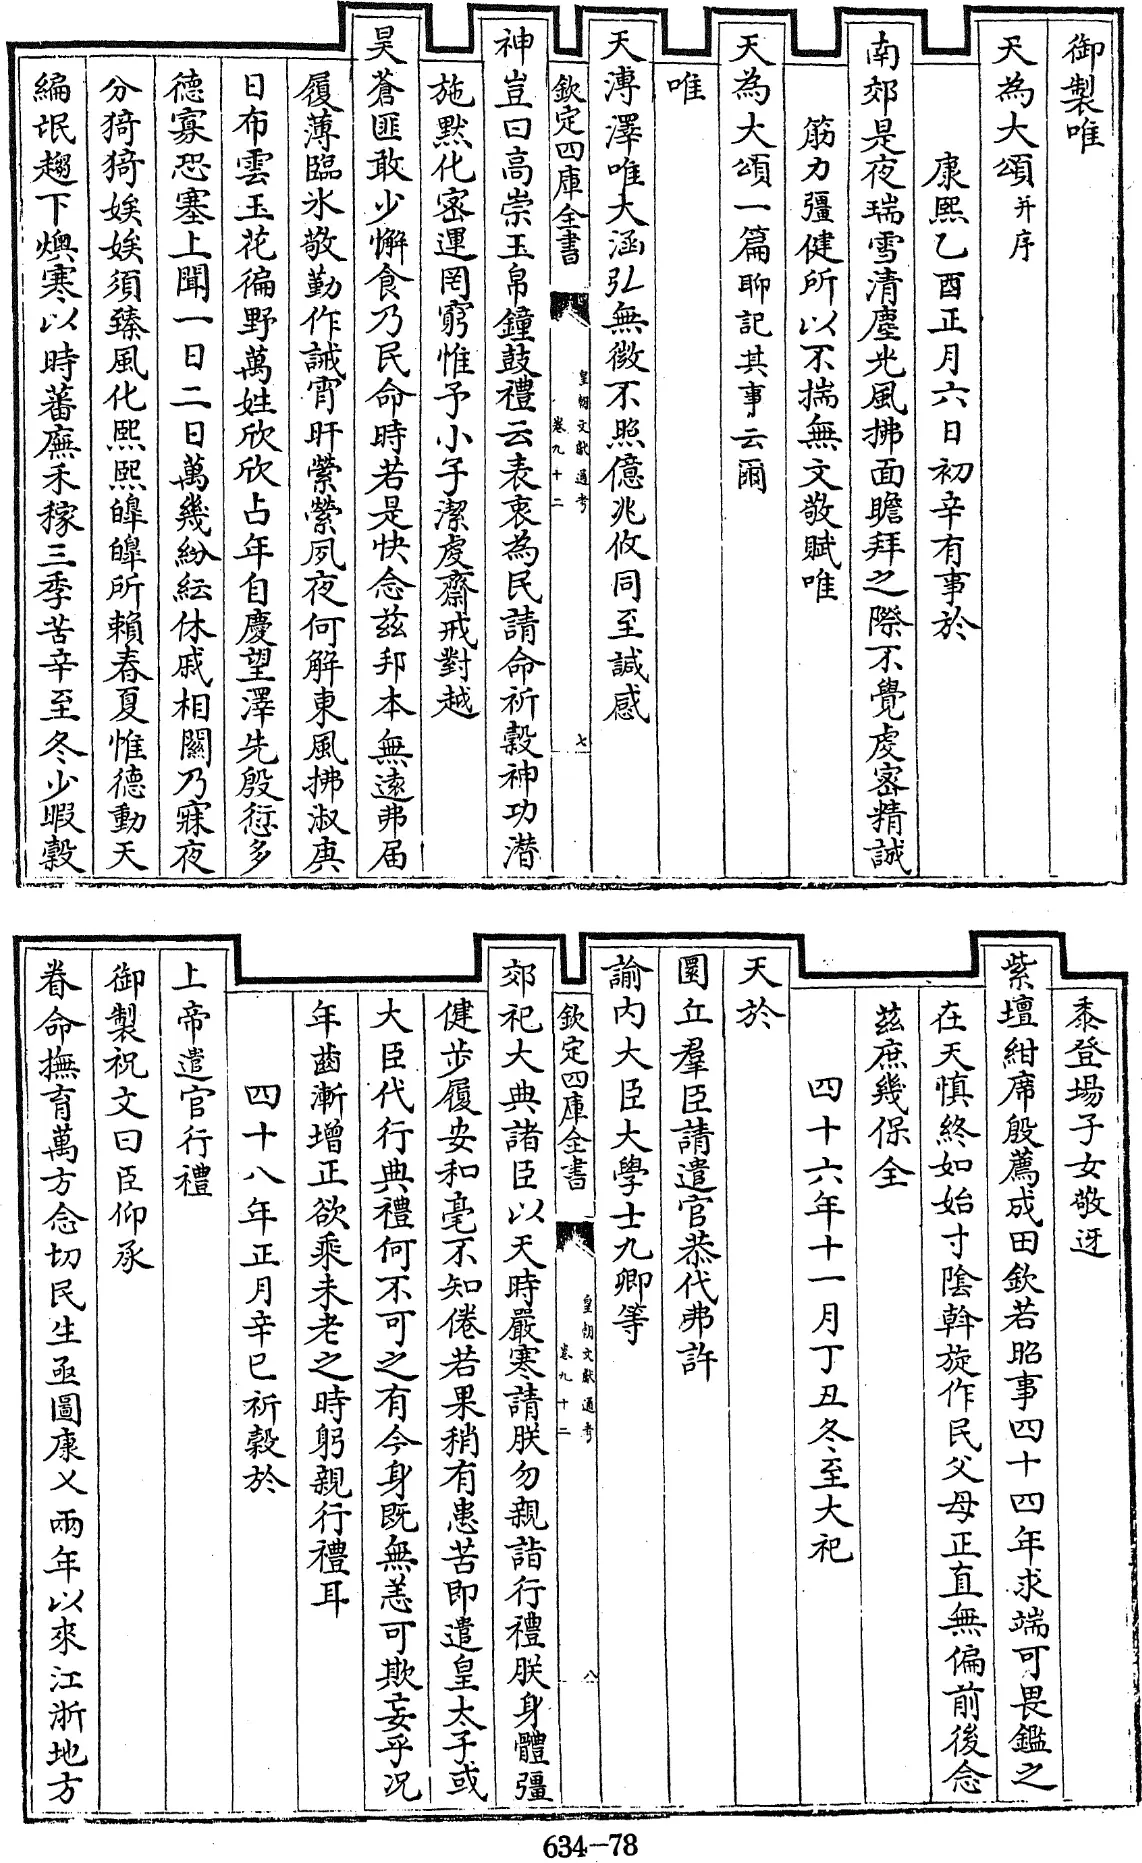 御製唯
天為大頌并序
康熙乙酉正月六日初辛有事於
南郊是夜瑞雪清塵光風拂面瞻拜之際不覺虔密精誠
筋力彊健所以不揣無文敬賦唯
天為大頌一篇聊記其事云爾
唯
天溥澤唯大涵弘無微不照億兆攸同至誠感
欽定四庫全書
皇朝文獻通考
卷九十二
七
神豈曰高崇玉帛鐘鼓禮云表衷為民請命祈穀神功潛
施默化密運罔窮惟予小子潔虔齋戒對越
昊蒼匪敢少懈食乃民命時若是快念茲邦本無遠弗届
履薄臨氷敬勤作誡宵旰縈縈夙夜何解東風拂淑庚
日布雲玉花徧野萬姓欣欣占年自慶望澤先殷愆多
德寡恐塞上聞一日二日萬幾紛紜休戚相關乃寐夜
分猗猗娭娭須臻風化熙熙皥皥所賴春夏惟德動天
編氓趨下燠寒以時蕃廡禾稼三季苦辛至冬少暇穀
黍登場子女敬迓
紫壇紺席殷薦成田欽若昭事四十四年求端可畏鑑之
在天慎終如始寸陰斡旋作民父母正直無偏前後念
茲庶幾保全
四十六年十一月丁丑冬至大祀
天於
圜丘羣臣請遣官恭代弗許
諭内大臣大學士九卿等
欽定四庫全書
皇朝文獻通考
卷九十二
八
郊祀大典諸臣以天時嚴寒請朕勿親詣行禮朕身體彊
健步履安和毫不知倦若果稍有患苦即遣皇太子或
大臣代行典禮何不可之有今身既無恙可欺妄乎况
年齒漸增正欲乘未老之時躬親行禮耳
四十八年正月辛巳祈穀於
上帝遣官行禮
御製祝文曰臣仰承
眷命撫育萬方念切民生亟圖康乂兩年以來江浙地方
634-78